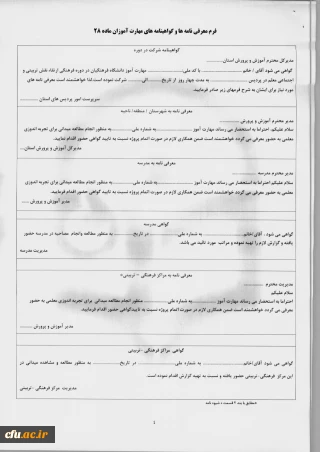 فرم معرفی نامه ها و گواهینامه های مهارت آموزان ماده ۲۸
گواهینامه شرکت در دوره
مدیرکل محترم آموزش و پرورش استان ............
گواهی می شود آقای / خانم .................. با کد ملی .................. مهارت آموز دانشگاه فرهنگیان در دوره فرهنگی ارتقاء نقش تربیتی و
اجتماعی معلم در پردیس .................. به مدت چهار روز از تاریخ .......... الی .......... شرکت نموده است. لذا خواهشمند است دستور فرمایید
مورد نیاز برای ایشان به شرح فرمهای زیر صادر فرمایید.
سرپرست امور پردیس های استان ..........
معرفی نامه به شهرستان / منطقه / ناحیه
مدیر محترم آموزش و پرورش ..........
سلام علیکم، احتراما به استحضار می رساند مهارت آموز .................. به شماره ملی .................. منظور انجام مطالعه میدانی برای تجربه اندوزی
معلمی به حضور معرفی می گردد خواهشمند است ضمن همکاری لازم در صورت اتمام پروژه نسبت به تایید گواهی حضور اقدام نمایید.
مدیر کل آموزش و پرورش استان ....
معرفی نامه به مدرسه
مدیر محترم مدرسه ..........
سلام علیکم، احتراما به استحضار می رساند مهارت آموز .................. به شماره ملی .................. منظور انجام مطالعه میدانی برای تجربه اندوزی
معلمی به حضور معرفی می گردد خواهشمند است ضمن همکاری لازم در صورت اتمام پروژه نسبت به تایید گواهی حضور اقدام نمایید.
مدیر آموزش و پرورش ....
گواهی مدرسه
گواهی می شود آقای/خانم .................. به شماره ملی .................. در تاریخ .................. به منظور مطالعه وانجام مصاحبه در مدرسه حضور یافته
و گزارش لازم را تهیه نموده و مراتب مورد تائید می باشد.
مدیریت مدرسه
معرفی نامه به مراکز فرهنگی – تربیتی*
مدیریت محترم ..........
سلام علیکم
احتراما به استحضار می رساند مهارت آموز .................. به شماره ملی .................. منظور انجام مطالعه میدانی برای تجربه اندوزی معلمی به حضور
معرفی می گردد خواهشمند است ضمن همکاری لازم در صورت اتمام پروژه نسبت به تاییدگواهی حضور اقدام نمایید.
مدیر آموزش و پرورش ....
گواهی مراکز فرهنگی -تربیتی
گواهی می شود آقای/خانم .................. به شماره ملی .................. در تاریخ .................. به منظور مطالعه و مشاهده میدانی در
این مراکز فرهنگی، تربیتی حضور یافته و نسبت به تهیه گزارش اقدام نموده است.
مدیریت مرکز فرهنگی -تربیتی
*مطابق با بند ۴ قسمت د شیوه نامه
cfu.ac.ir